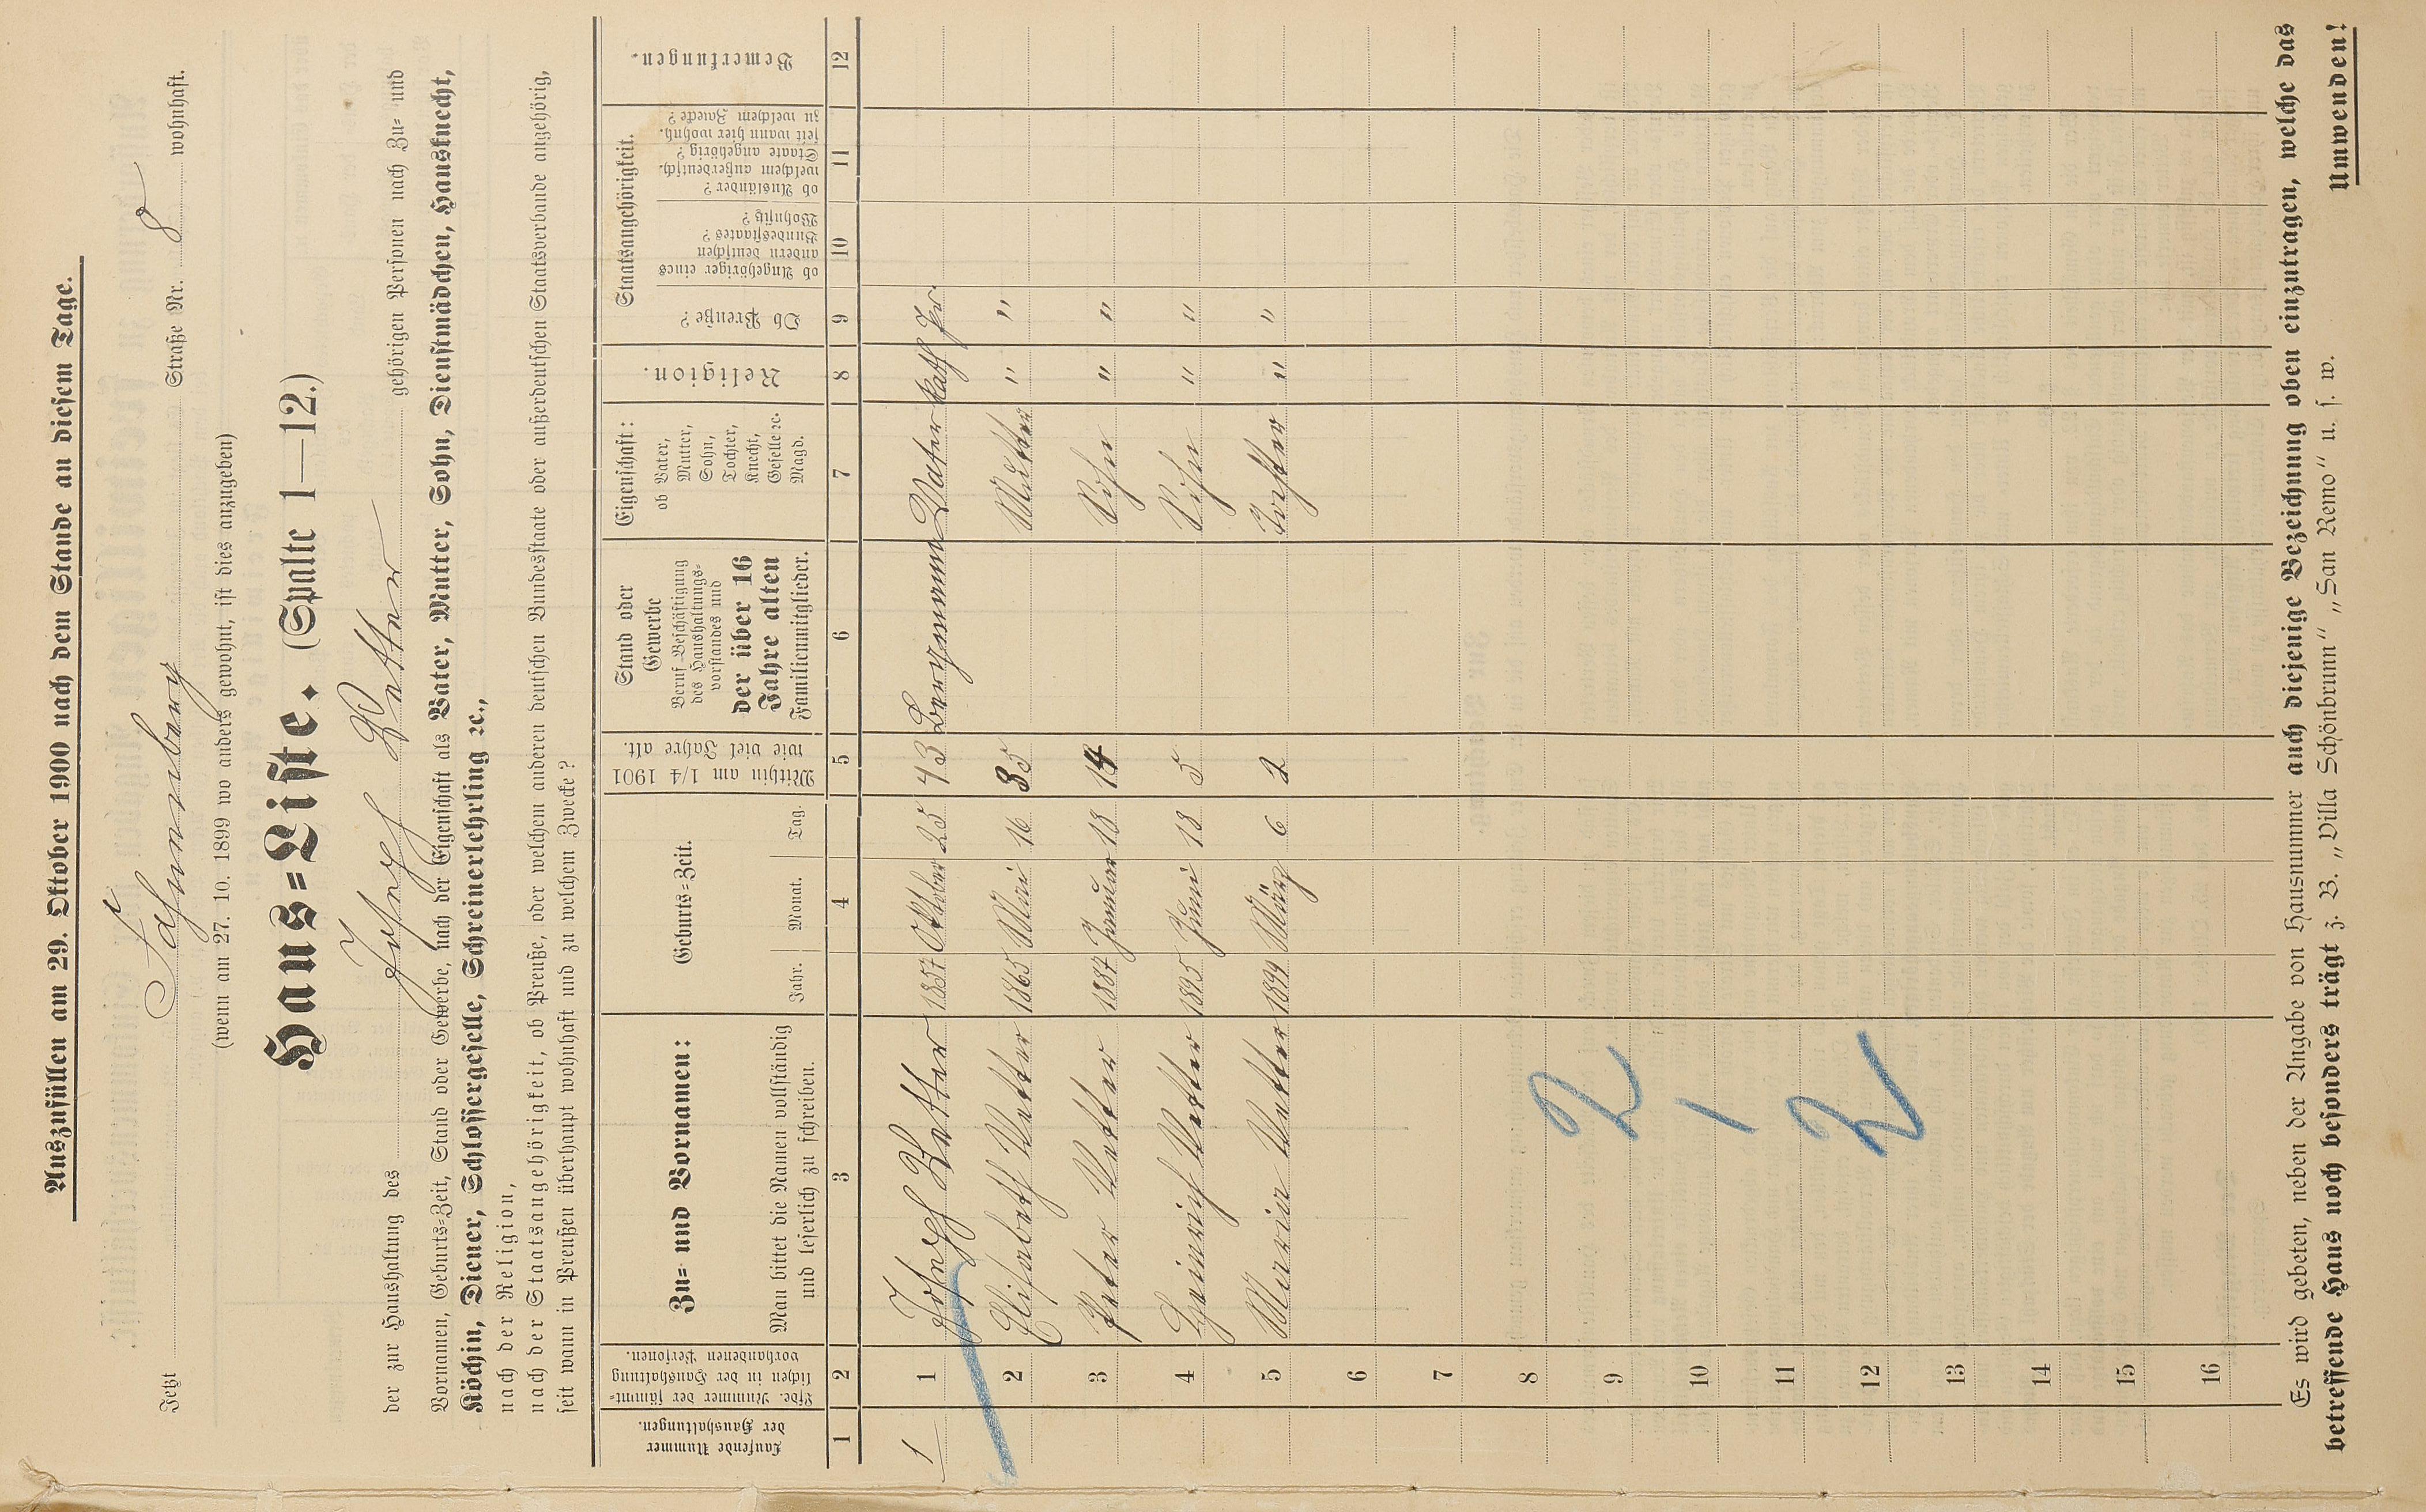 Auszufüllen am 29. Oktober 1900 nach dem Stande an diesem Tage.
Jetzt Fahnenberg Straße Nr. 8 wohnhaft.
(wenn am 27. 10. 1899 wo anders gewohnt, ist dies anzugeben)
Haus=Liste. (Spalte 1—12.)
der zur Haushaltung des Joseph Vetter gehörigen Personen nach Zu= und
Vornamen, Geburts=Zeit, Stand oder Gewerbe, nach der Eigenschaft als Vater, Mutter, Sohn, Dienstmädchen, Hausknecht,
Köchin, Diener, Schlossergeselle, Schreinerlehrling ꝛc.,
nach der Religion,
nach der Staatsangehörigkeit, ob Preuße, oder welchem anderen deutschen Bundesstaate oder außerdeutschen Staatsverbande angehörig,
seit wann in Preußen überhaupt wohnhaft und zu welchem Zwecke?
Laufende Nummer der Haushaltungen.
Lfde. Nummer der sämmtlichen in der Haushaltung vorhandenen Personen.
Zu= und Vornamen:
Man bittet die Namen vollständig
und leserlich zu schreiben.
Geburts=Zeit.
Jahr. Monat. Tag.
Mithin am 1/4 1901
wie viel Jahre alt.
Stand oder
Gewerbe
Beruf=Beschäftigung
des Haushaltungs-
vorstandes und
der über 16
Jahre alten
Familienmitglieder.
Eigenschaft:
ob Vater,
Mutter,
Sohn,
Tochter,
Knecht,
Geselle ꝛc.
Magd.
Religion.
Staatsangehörigkeit.
Ob Preuße?
ob Angehöriger eines
andern deutschen
Bundesstaates?
Wohnsitz?
ob Ausländer?
welchem außerdeutsch.
Staate angehörig?
seit wann hier wohnh.
zu welchem Zwecke?
Bemerkungen.
1 2 3 4 5 6 7 8 9 10 11 12
1 1 Joseph Vetter 1857 Oktober 25 43 Bergmann Vater kath Pr.
2 Elisabeth Vetter 1865 Mai 16 35 Mutter " "
3 Peter Vetter 1887 Januar 18 14 Sohn " "
4 Heinrich Vetter 1895 Juni 18 5 Sohn " "
5 Maria Vetter 1899 März 6 2 Tochter " "
6
7
8
9
10
11
12
13
14
15
16
2
1
2
Es wird gebeten, neben der Angabe von Hausnummer auch diejenige Bezeichnung oben einzutragen, welche das
betreffende Haus noch besonders trägt z. B. „Villa Schönbrunn" „San Remo" u. s. w.
Umwenden!